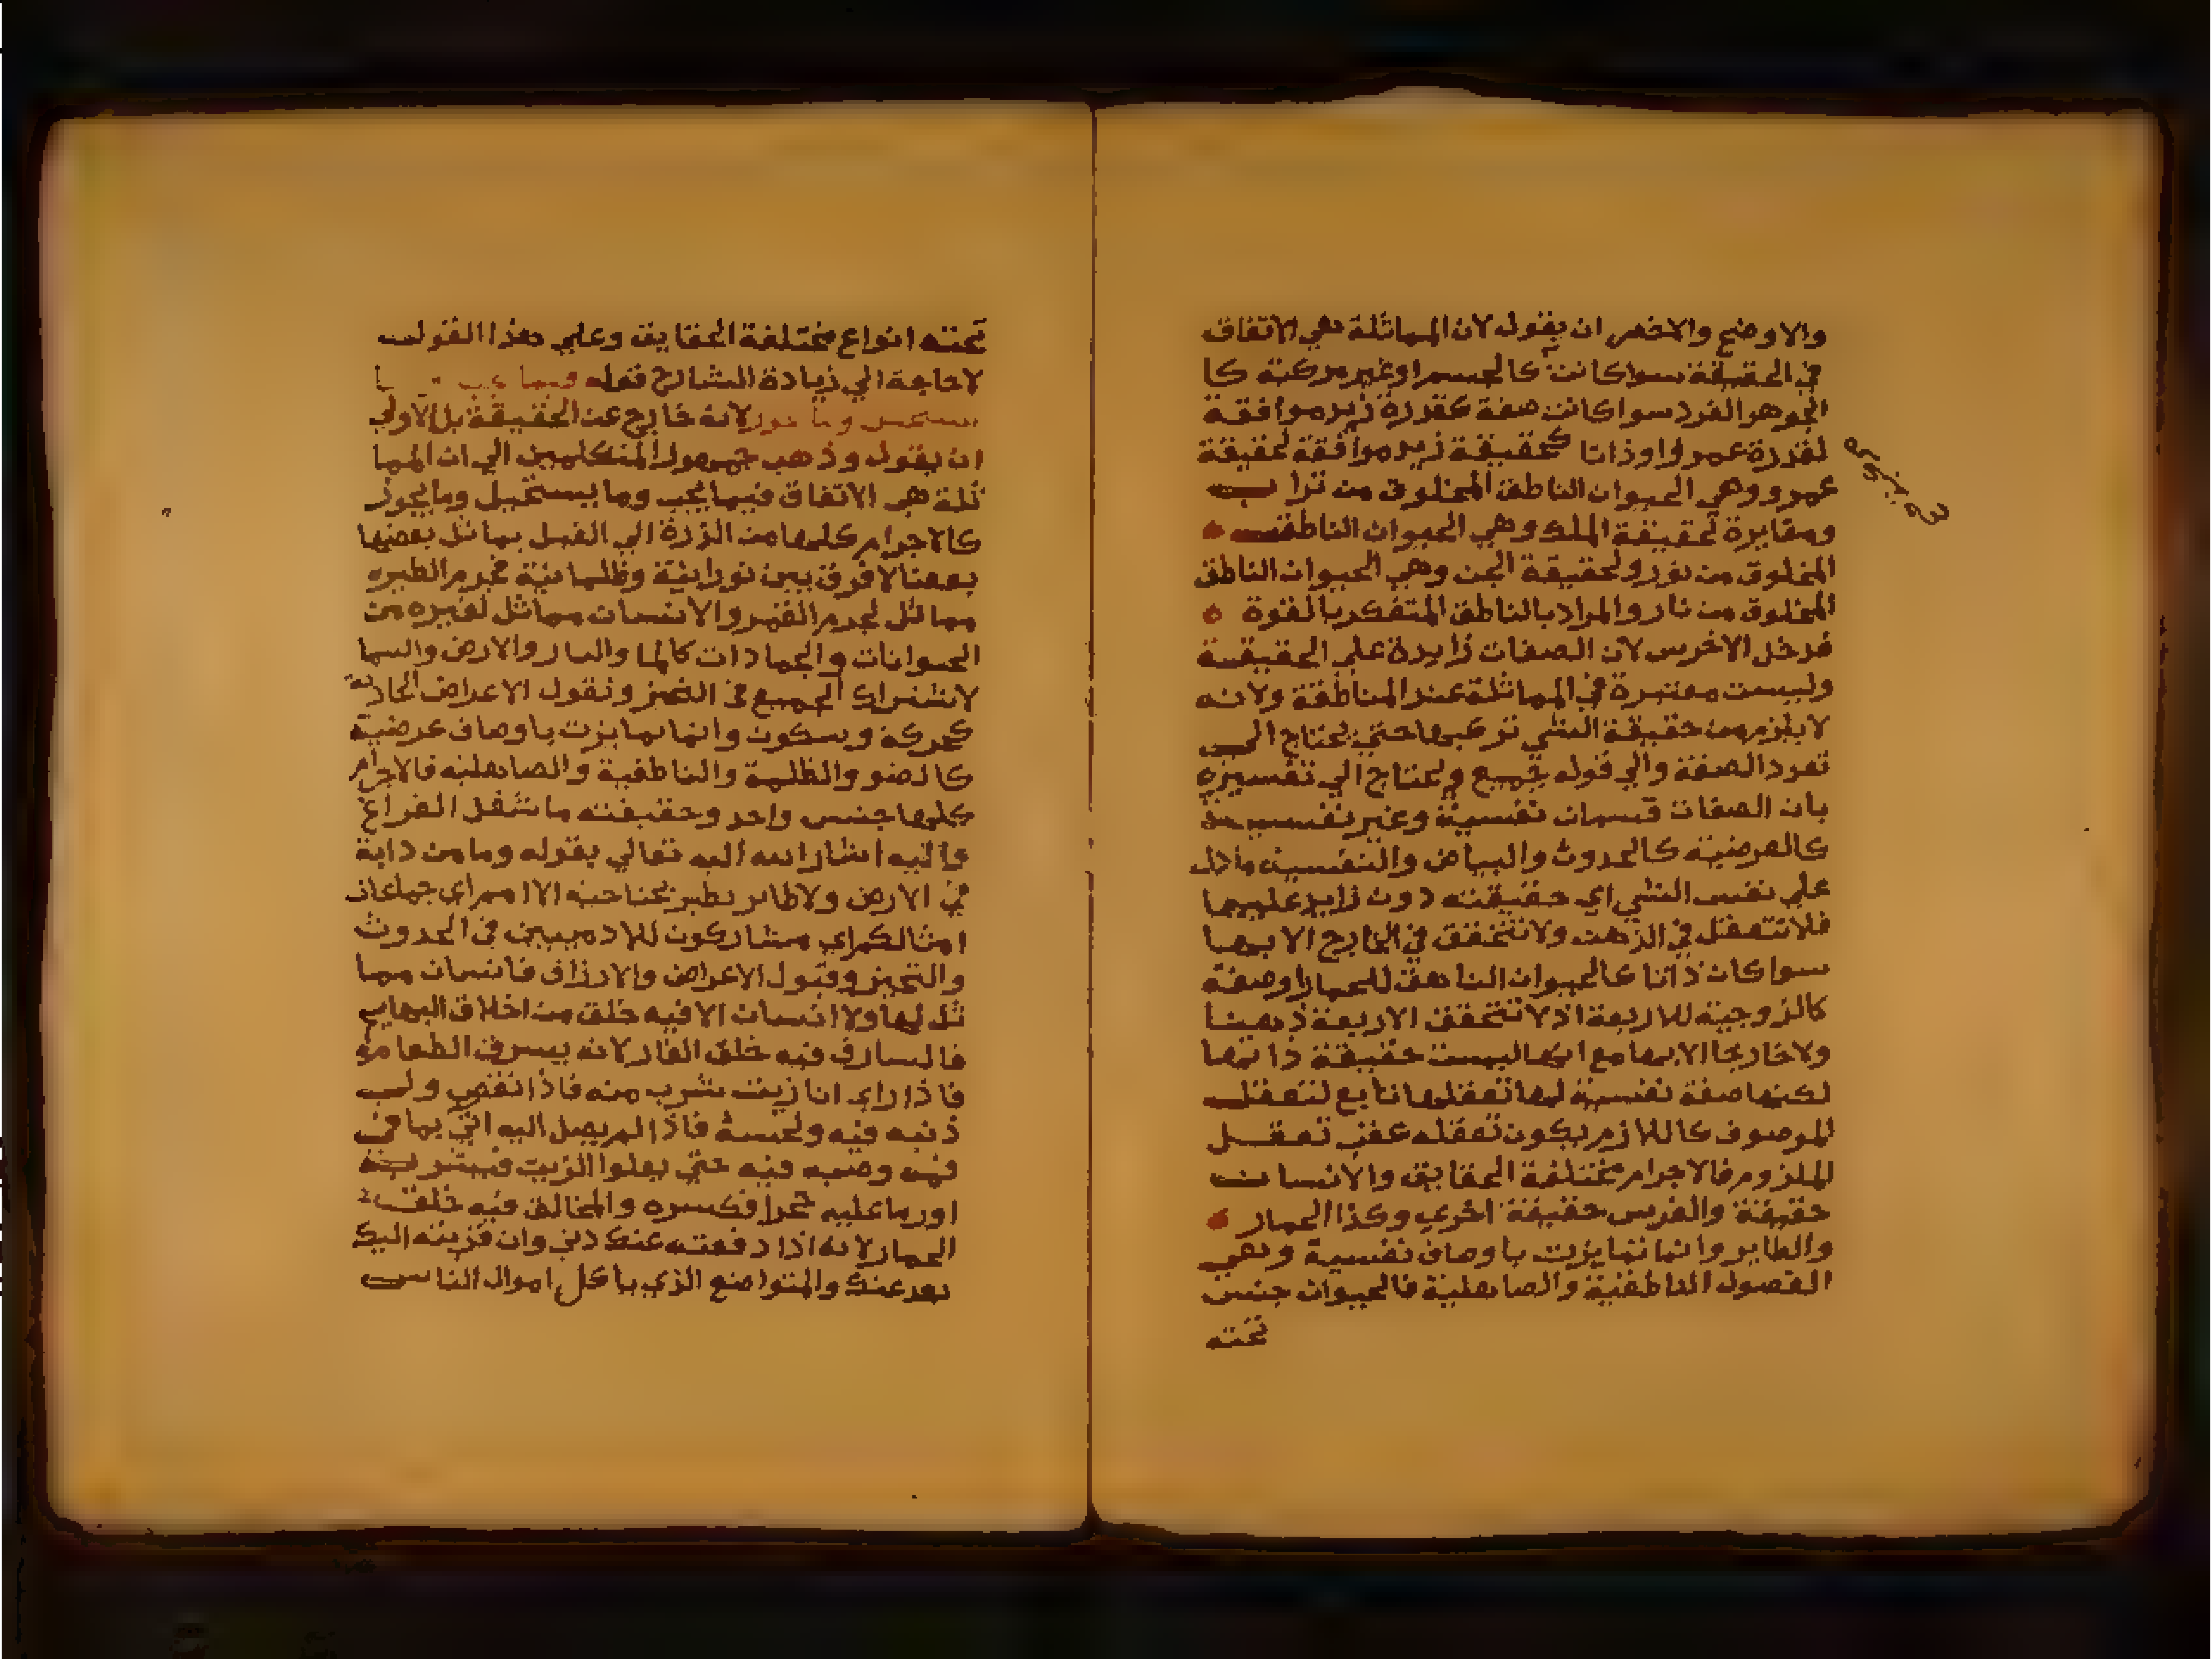 والاوضح والاخصر ان يقول لان المماثلة هي الاتفاق
في الحقيقة سوا كانت كالجسم او غير مركبة كا
لجوهر الفرد سوا كانت صفة كقدرة زيد موافقة
لقدرة عمرو او ذاتا كحقيقة زيد موافقة لحقيقة
عمرو وهي الحيوان الناطق المخلوق من تراب
ومغايرة لحقيقة الملك وهي الحيوان الناطق
المخلوق من نور ولحقيقة الجن وهي الحيوان الناطق
المخلوق من نار والمراد بالناطق المتفكر بالقوة
فدخل الاخرس لان الصفات زايدة علي الحقيقة
وليست معتبرة في المماثلة عند المناطقة ولانه
لا يلزم من حقيقة الشي تركيبها حتي يحتاج الي
تعدد الصفة والي قوله جميع ويحتاج الي تفسيره
بان الصفات قسمان نفسية وغير نفسية
كالعرضية كالحدوث والبياض والنفسية ما دل
علي نفس الشي اي حقيقته دون زايد عليها
فلا تتعقل في الذهن ولا تتحقق في الخارج الا بها
سوا كان ذاتا كالحيوان الناهق للحمار او صفة
كالزوجية للاربعة اذ لا تتحقق الاربعة ذهنا
ولا خارجا الا بها مع انها ليست حقيقة ذاتها
لكنها صفة نفسية لها تعقلها تابع لتعقل
الموصوف كاللازم يكون تعقله عقب تعقل
الملزوم فالاجرام مختلفة الحقايق والانسان
حقيقة والفرس حقيقة اخري وكذا الحمار
والطاير وانما تمايزت باوصاف نفسية وهي
الفصول الناطقية والصاهلية فالحيوان جنس
تحته
تحته انواع مختلفة الحقايق وعلي هذا القول
لا حاجة الي زيادة الشارح قوله فيما يجب
وما يجوز لانه خارج عن الحقيقة بل الاولي
ان يقول وذهب جمهور المتكلمين الي ان المما
ثلة هي الاتفاق فيما يجب وما يستحيل وما يجوز
كالاجرام كلها من الذرة الي الفيل يماثل بعضها
بعضا لا فرق بين نورانية وظلمانية فجرم الطير
مماثل لجرم القمر والانسان مماثل لغيره من
الحيوانات والجمادات كالما والنار والارض والسما
لاشتراك الجميع في التحيز وتقول الاعراض الحادثة
كحركة وسكون وانما تمايزت باوصاف عرضية
كالضو والظلمة والناطقية والصاهلية فالاجرام
كلها جنس واحد وحقيقته ما شغل الفراغ
واليه اشار الله اليه تعالي بقوله وما من دابة
في الارض ولا طاير يطير بجناحيه الا امم اي جماعات
امثالكم اي مشاركون للادميين في الحدوث
والتحيز وقبول الاعراض والارزاق فانسان مما
ثل لها ولا انسان الا فيه خلق من اخلاق البهايم
فالسارق فيه خلق الفار لانه يسرق الطعام
فاذا راي انا زيت شرب منه فاذا نقص ولي
ذنبه فيه ولحسه فاذا لم يصل اليه اتي بما في
فمه وصبه فيه حتي يعلوا الزيت فيشربه
او رما عليه حجرا فكسره والمخالف فيه خلق
الحمار لانه اذا دفعته عنك دني وان قربته اليك
بعد عنك والمتواضع الذي ياكل اموال الناس